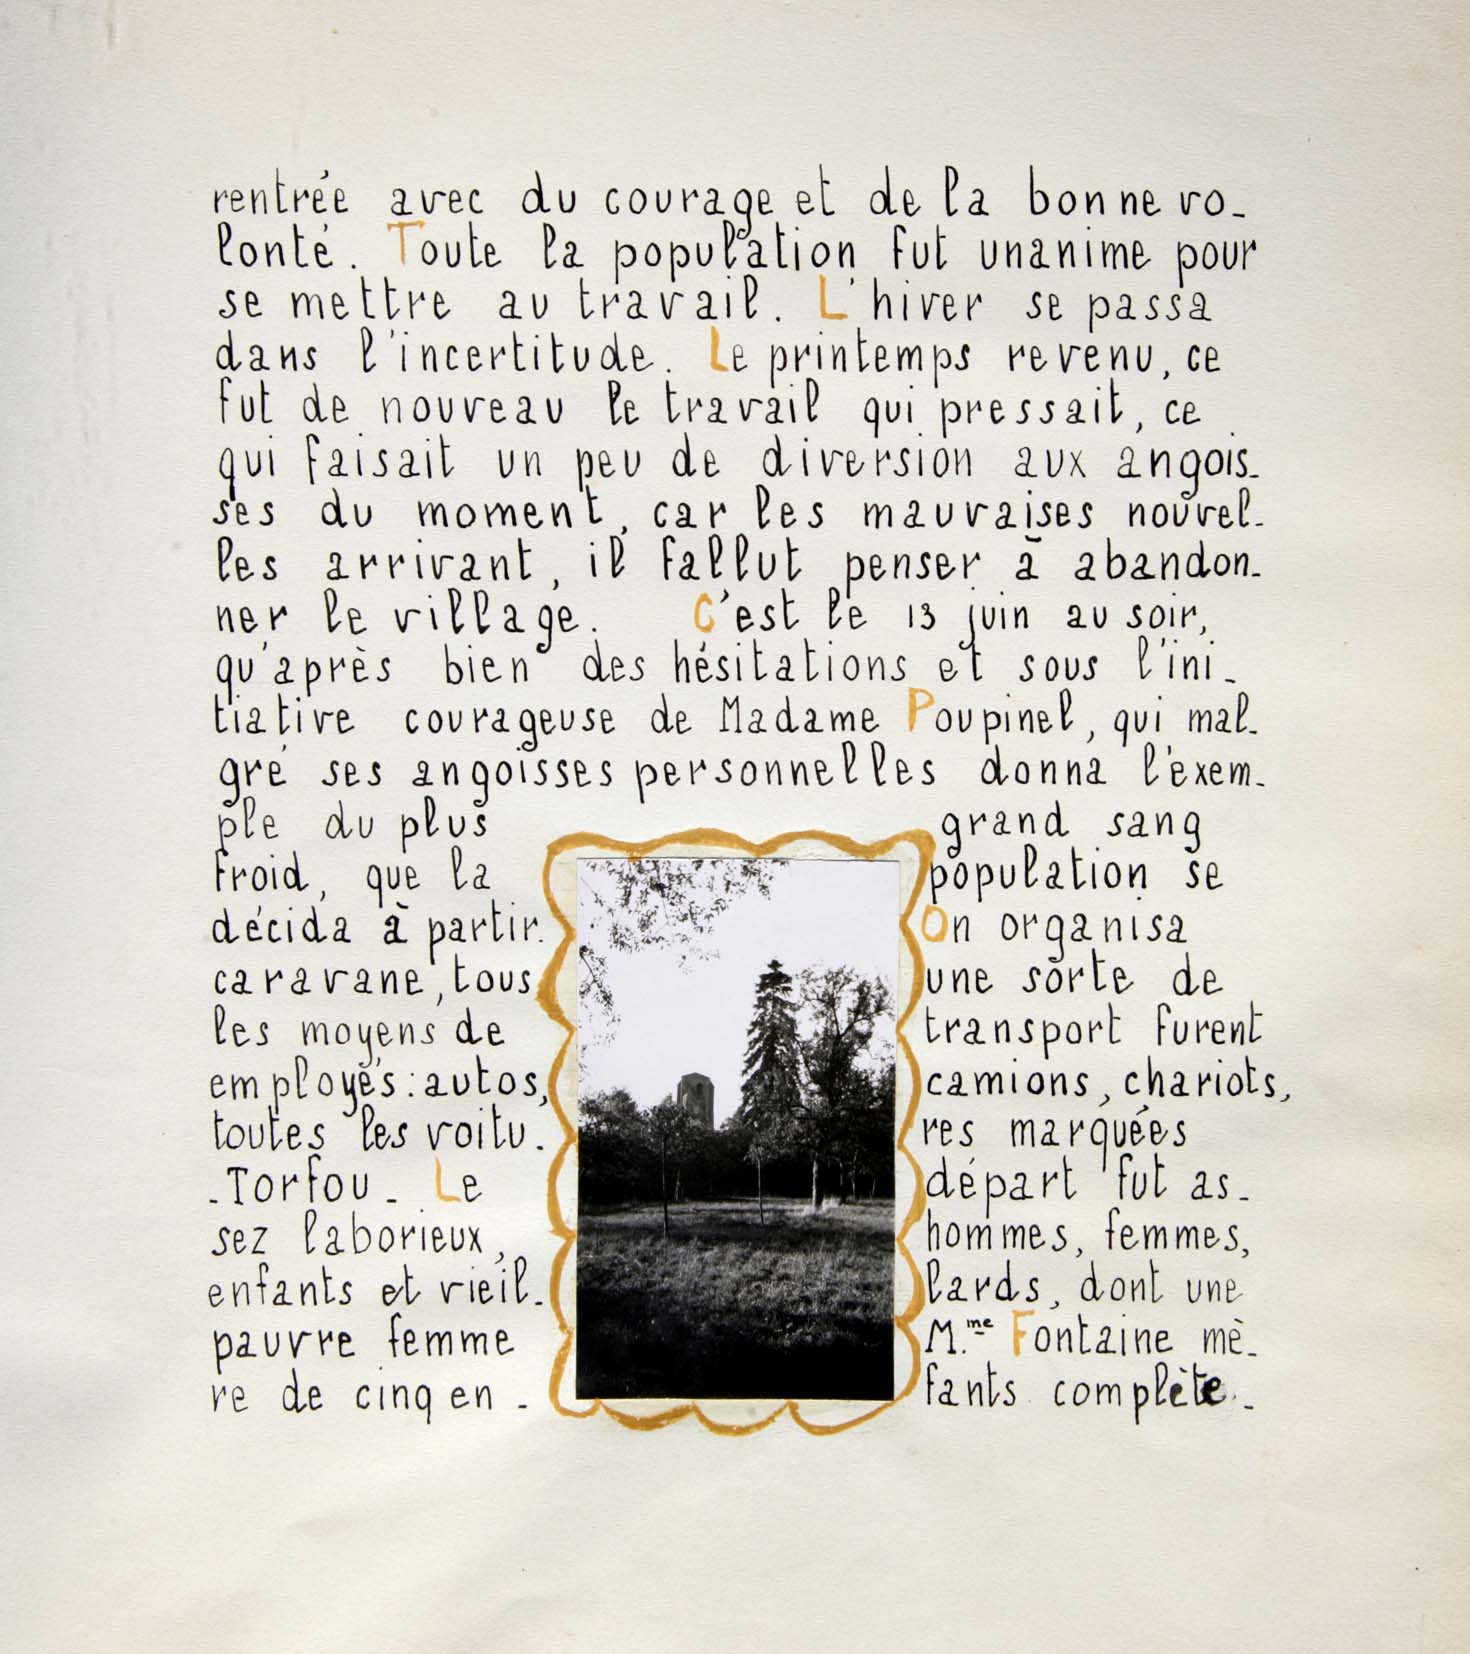 rentrée avec du courage et de la bonne vo-
lonté. Toute la population fut unanime pour
se mettre au travail. L'hiver se passa
dans l'incertitude. Le printemps revenu, ce
fut de nouveau le travail qui pressait, ce
qui faisait un peu de diversion aux angois-
ses du moment, car les mauvaises nouvel-
les arrivant, il fallut penser à abandon-
ner le village. C'est le 13 juin au soir,
qu'après bien des hésitations et sous l'ini-
tiative courageuse de Madame Poupinel, qui mal-
gré ses angoisses personnelles donna l'exem-
ple du plus grand sang
froid, que la population se
décida à partir. On organisa
caravane, tous une sorte de
les moyens de transport furent
employés : autos, camions, chariots,
toutes les voitu- res marquées
-Torfou- Le départ fut as-
sez laborieux, hommes, femmes,
enfants et vieil- lards, dont une
pauvre femme M.me Fontaine mè-
re de cinq en- fants complète-